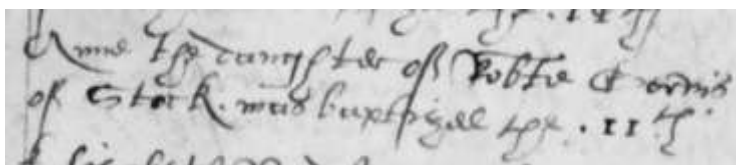 Anne the daughter of Robte
of Stock. was baptized the . 11th.